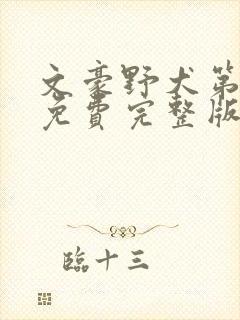 文豪野犬第
免費完整版
臨十三